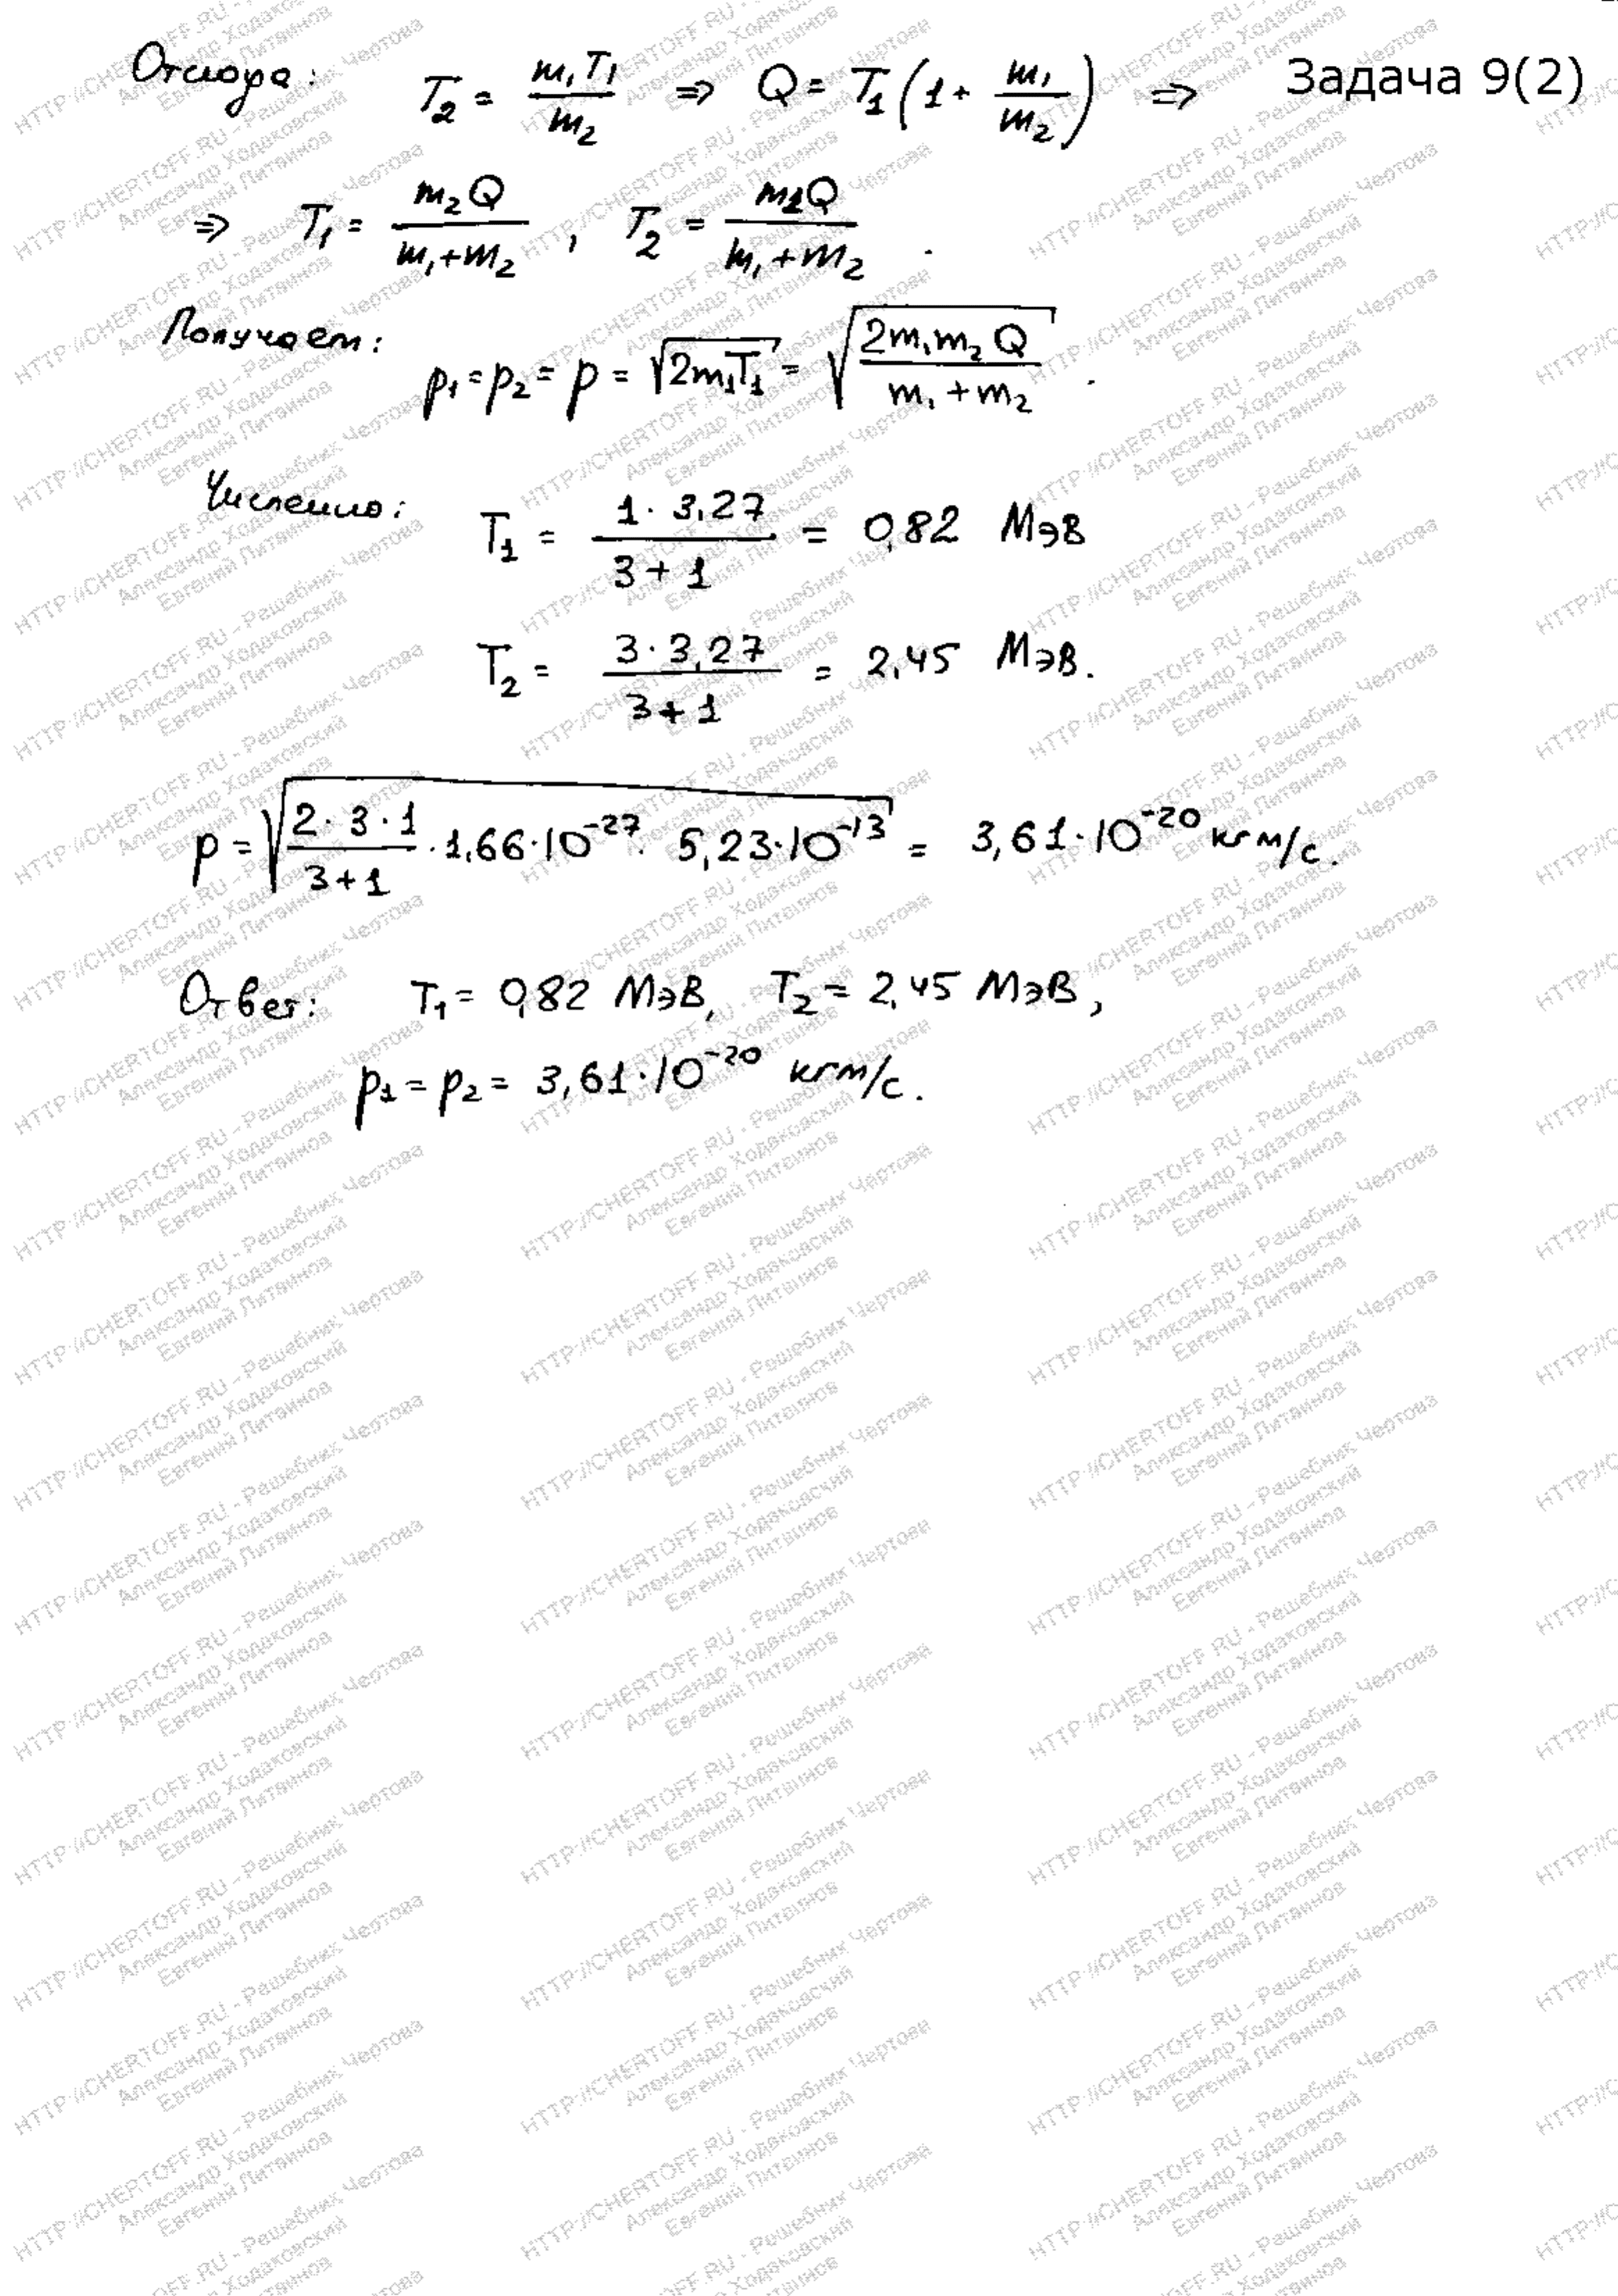 Отсюда: T₂ = m₁T₁/m₂ ⇒ Q = T₁(1 + m₁/m₂) ⇒ Задача 9(2)
⇒ T₁ = m₂Q/(m₁+m₂), T₂ = m₁Q/(m₁+m₂).
Получаем: p₁ = p₂ = p = √(2m₁T₁) = √(2m₁m₂Q/(m₁+m₂)).
Численно: T₁ = 1·3,27/(3+1) = 0,82 МэВ
T₂ = 3·3,27/(3+1) = 2,45 МэВ.
p = √(2·3·1/(3+1)·1,66·10⁻²⁷·5,23·10⁻¹³) = 3,61·10⁻²⁰ кгм/с.
Ответ: T₁ = 0,82 МэВ, T₂ = 2,45 МэВ,
p₁ = p₂ = 3,61·10⁻²⁰ кгм/с.
HTTP://CHERTOFF.RU - Решебник Чертова
Александр Ходаковский
Евгений Литвинов